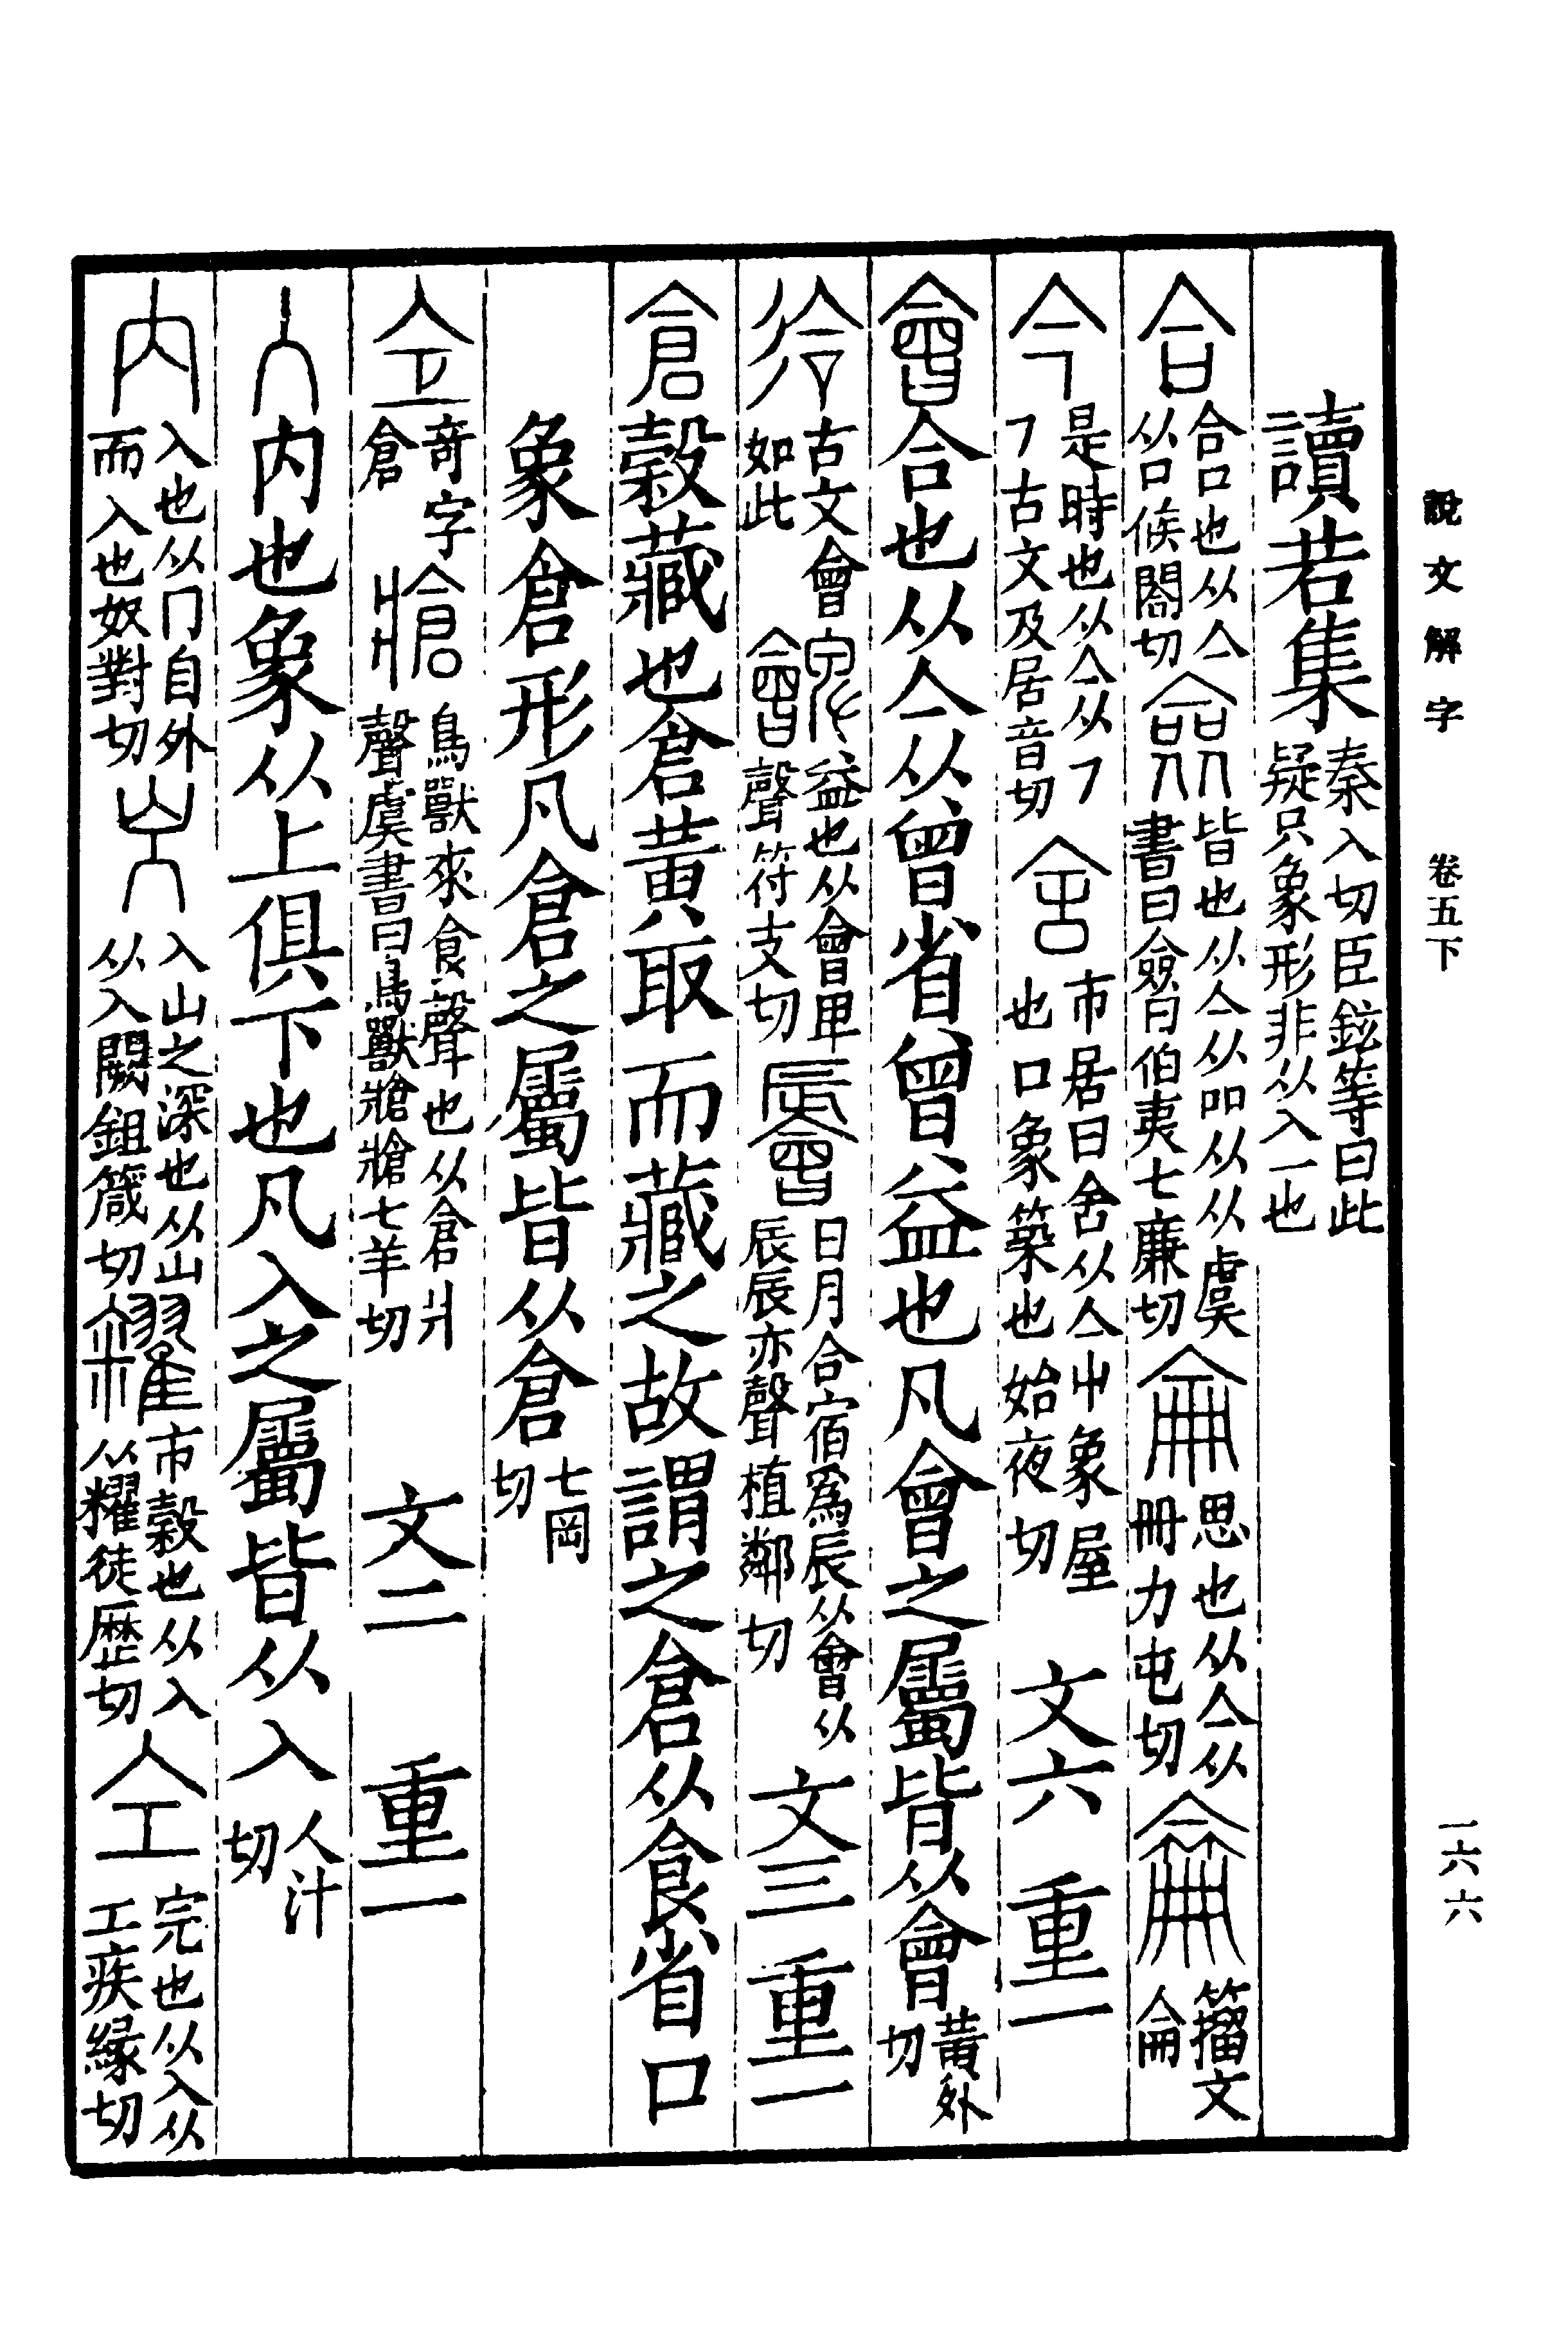 說文解字 卷五下 一六六
讀若集秦入切臣鉉等曰此疑只象形非从入一也
合合口也从亼从口候閤切僉皆也从亼从吅从从虞書曰僉曰伯夷七廉切侖思也从亼从冊力屯切侖籀文侖
今是時也从亼从㇇㇇古文及居音切舍市居曰舍从亼屮象屋也口象築也始夜切 文六 重一
會合也从亼从曾省曾益也凡會之屬皆从會黃外切
㣛古文會如此䪞益也从會卑聲符支切䢈日月合宿爲辰从會从辰辰亦聲植鄰切 文三 重一
倉穀藏也倉黃取而藏之故謂之倉从食省口
象倉形凡倉之屬皆从倉七岡切
仺奇字倉牄鳥獸來食聲也从倉爿聲虞書曰鳥獸牄牄七羊切 文二 重一
入内也象从上俱下也凡入之屬皆从入人汁切
内入也从冂自外而入也奴對切㞥入山之深也从山从入闕鉏箴切糴市穀也从入从䊮徒歷切仝完也从入从工疾緣切